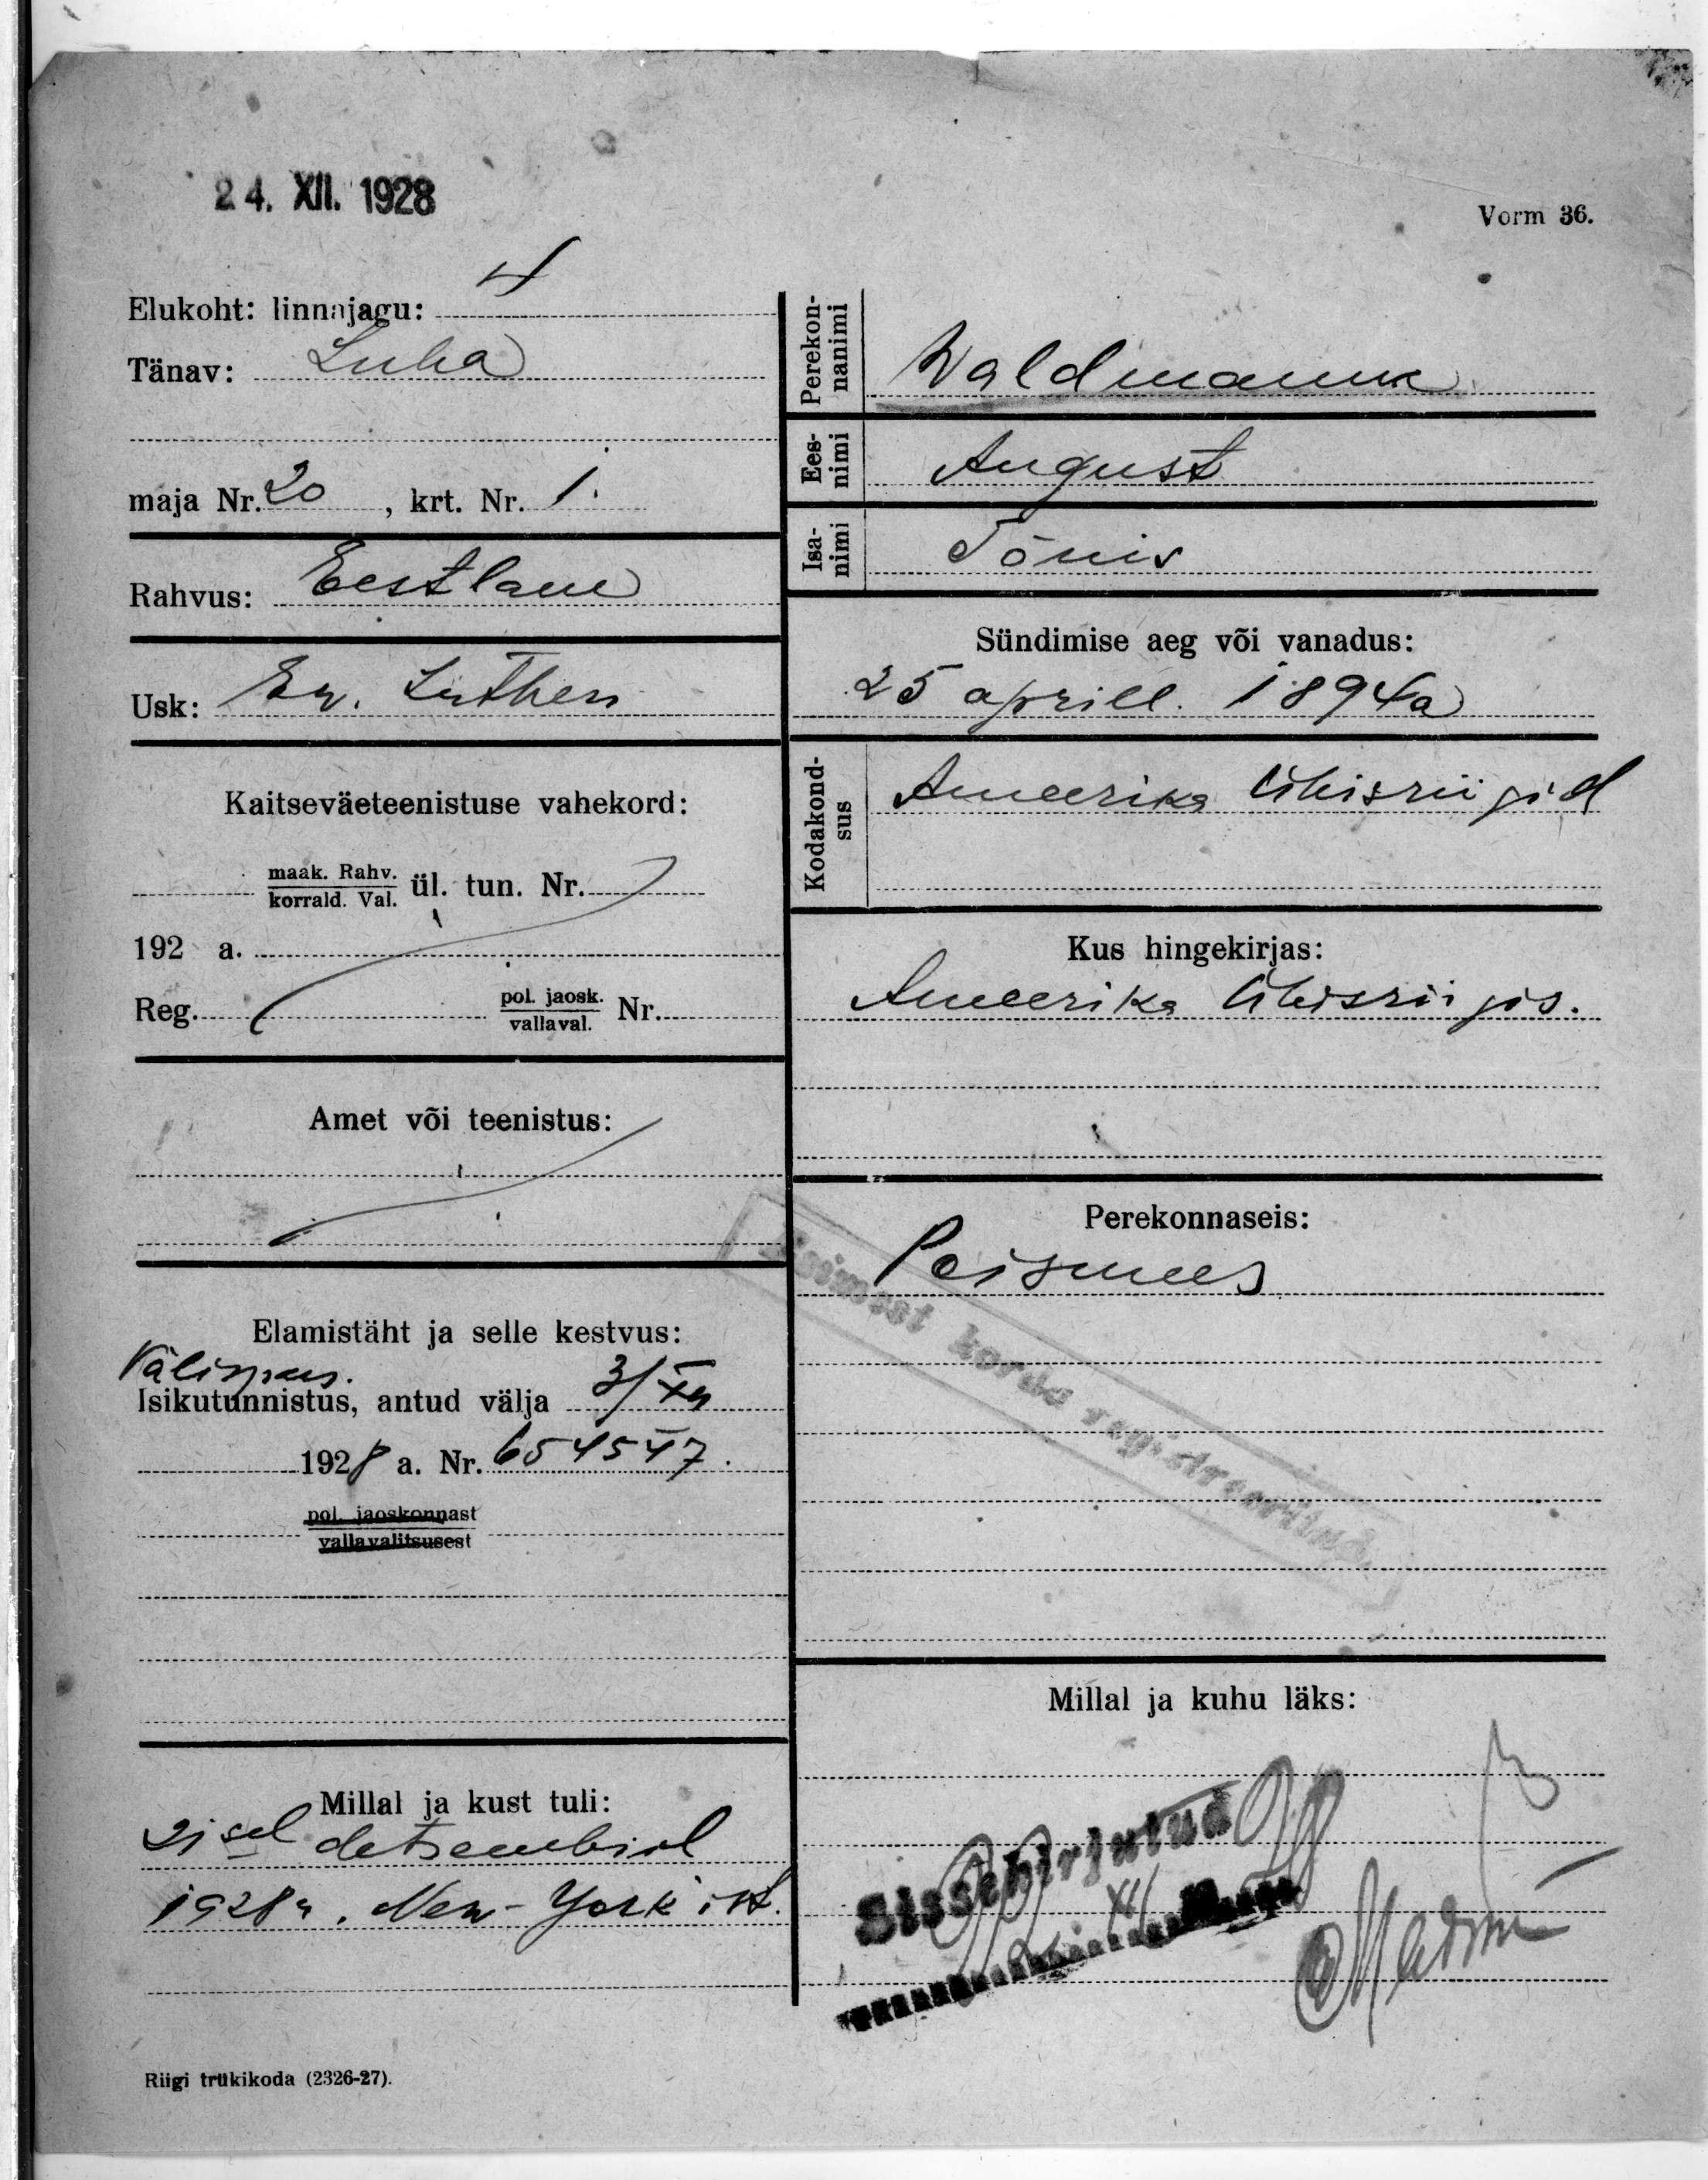 24. XII. 1928
Vorm 36.
Elukoht: linnajagu: 4
Tänav: Luha
maja Nr. 20, krt. Nr. 1.
Rahvus: Eestlane
Usk: Ev. Luther
Kaitseväeteenistuse vahekord:
maak. Rahv.
korrald. Val. ül. tun. Nr.
192 a.
Reg. pol. jaosk.
vallaval. Nr.
Amet või teenistus:
Elamistäht ja selle kestvus:
Välispass.
Isikutunnistus, antud välja 3/XII
1928 a. Nr. 654547.
pol. jaoskonnast
vallavalitsusest
Millal ja kust tuli:
21 sel detsembril
1928 a. New-York'ist.
Riigi trükikoda (2326-27).
Perekon-
nanimi Waldmann
Ees-
nimi August
Isa-
nimi Tõnis
Sündimise aeg või vanadus:
25 aprill. 1894 a
Kodakond-
sus Ameerika Ühisriigid
Kus hingekirjas:
Ameerika Ühisriigis.
Perekonnaseis:
Poismees
Esimest korda registreeritud.
Millal ja kuhu läks:
Sissekirjutud
XII